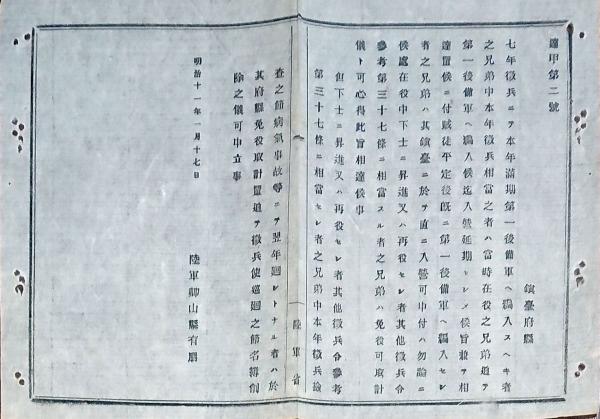 達甲第二號
鎭臺府縣
七年徴兵ニテ本年滿期第一後備軍ヘ編入スヘキ者
之兄弟中本年徴兵相當之者ハ當時在役之兄弟追テ
第一後備軍ヘ編入候迄入營延期セシメ候旨兼テ相
達置候ニ付賊徒平定後既ニ第一後備軍ヘ編入セシ
者之兄弟ハ其鎭臺ニ於テ直ニ入營可申付ハ勿論ニ
候處在役中下士ニ昇進又ハ再役セシ者其他徴兵令
參考第三十七條ニ相當スル者之兄弟ハ免役可取計
儀ト可心得此旨相達候事
但下士ニ昇進又ハ再役セシ者其他徴兵令參考
第三十七條ニ相當セシ者之兄弟中本年徴兵
陸軍省
査之節病氣事故等ニテ翌年廻シトナル者ハ於
其府縣免役取計置追テ徴兵使巡廻之節名簿
除之儀可申立事
明治十一年一月十七日
陸軍卿山縣有朋